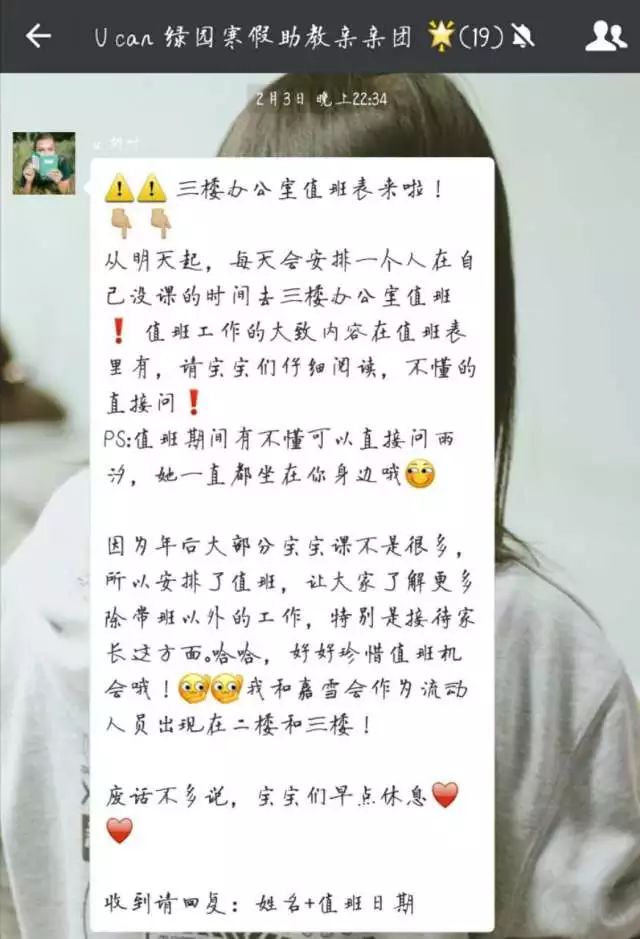 U can 绿园寒假助教亲亲团 🌟(19)
2月3日 晚上22:34
⚠️⚠️ 三楼办公室值班表来啦！
👇🏼👇🏼
从明天起，每天会安排一个人在自
己没课的时间去三楼办公室值班
❗ 值班工作的大致内容在值班表
里有，请宝宝们仔细阅读，不懂的
直接问❗
PS:值班期间有不懂可以直接问雨
汐，她一直都坐在你身边哦
因为年后大部分宝宝课不是很多，
所以安排了值班，让大家了解更多
除带班以外的工作，特别是接待家
长这方面。哈哈，好好珍惜值班机
会哦！我和嘉雪会作为流动
人员出现在二楼和三楼！
废话不多说，宝宝们早点休息❤️
❤️
收到请回复：姓名+值班日期